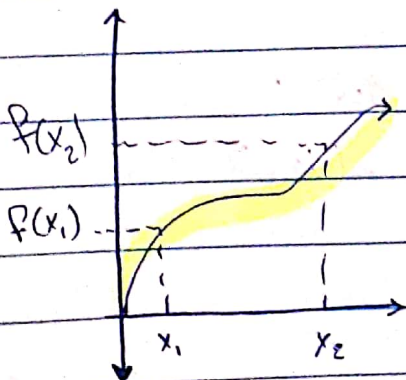 f(x₂)
f(x₁)
x₁ x₂